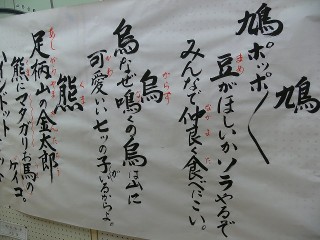 鳩
鳩ポッポ〳〵
豆がほしいかソラやるで
みんなで仲良く食べにこい。
烏
烏なぜ鳴くの烏は山に
可愛いい七ッの子がいるからよ。
熊
足柄山の金太郎
熊にマタガリお馬のケイコ。